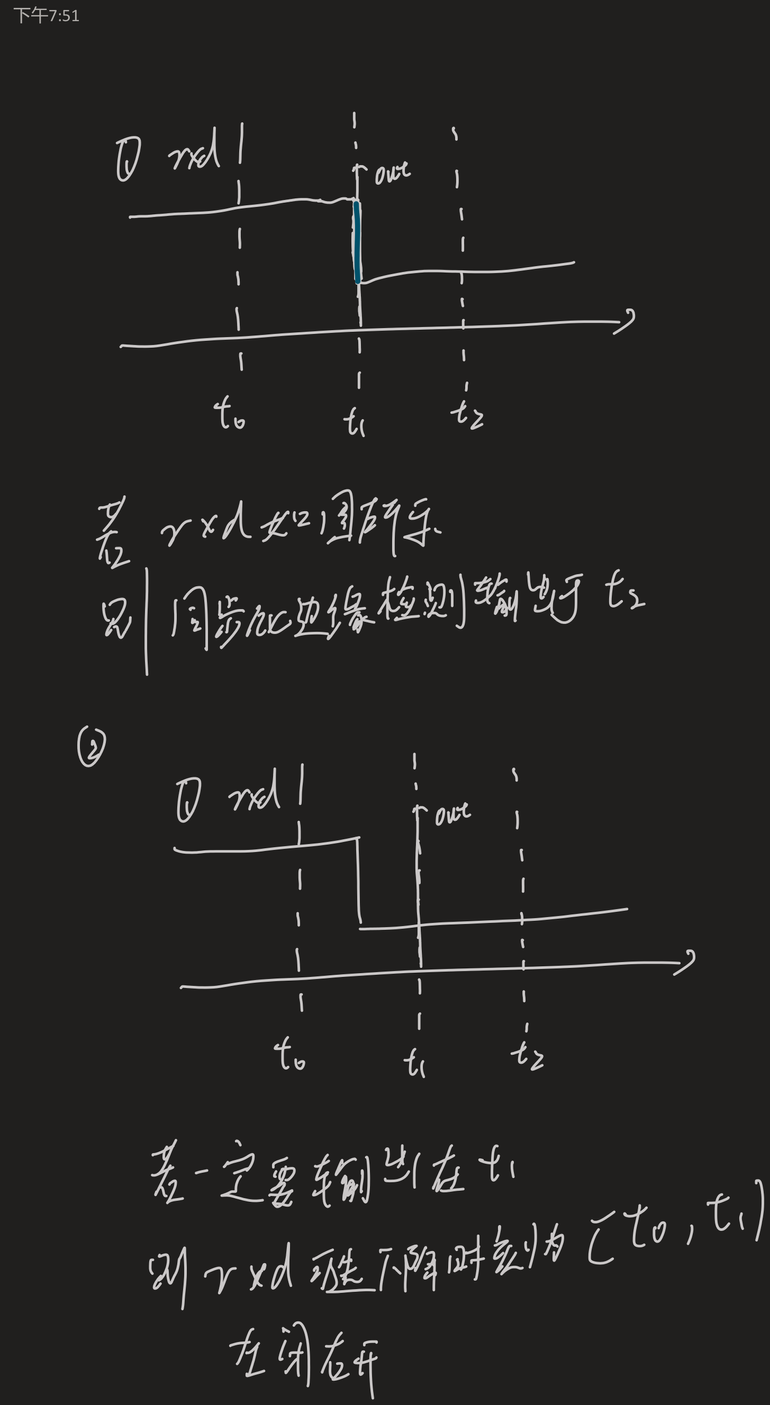 下午7:51
① rxd
out
t₀ t₁ t₂
若 rxd 如图所示
则 同步化边缘检测输出于 t₂
②
① rxd
out
t₀ t₁ t₂
若一定要输出在 t₁
则 rxd 可能下降时刻为 [t₀, t₁)
左闭右开